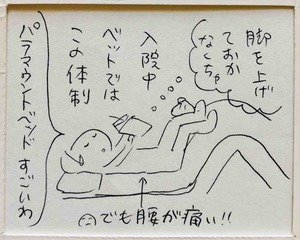 脚を上げ
ておか
なくちゃ
入院中
ベットでは
この体制
パラマウントベッド すごいわ
でも腰が痛い!!